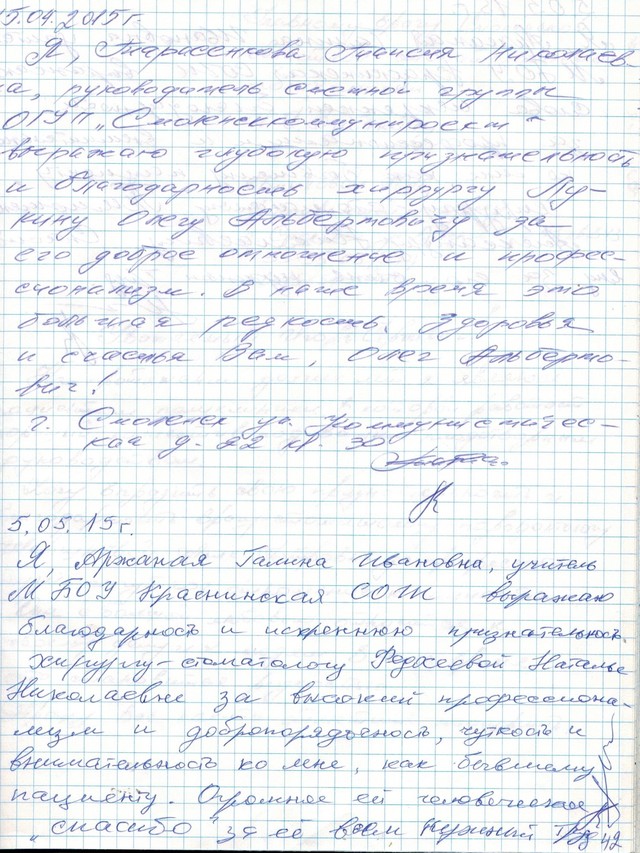 5.04.2015 г.
Я, Тарасенкова Таисия Николаев-
на, руководитель сметной группы
ОГУП „Смоленсккоммунпроект"
выражаю глубокую признательность
и благодарность хирургу Лу-
кину Олегу Альбертовичу за
его доброе отношение и профес-
сионализм. В наше время это
большая редкость. Здоровья
и счастья Вам, Олег Альберто-
вич!
г. Смоленск ул. Коммунистичес-
кая д. 22 кв. 30
5.05.15 г.
Я, Аржаная Галина Ивановна, учитель
МБОУ Краснинская СОШ выражаю
благодарность и искреннюю признательность
хирургу-стоматологу Федосеевой Наталье
Николаевне за высокий профессиона-
лизм и добропорядочность, чуткость и
внимательность ко мне, как бывшему
пациенту. Огромное ей человеческое
„спасибо" за её всем нужный труд
42